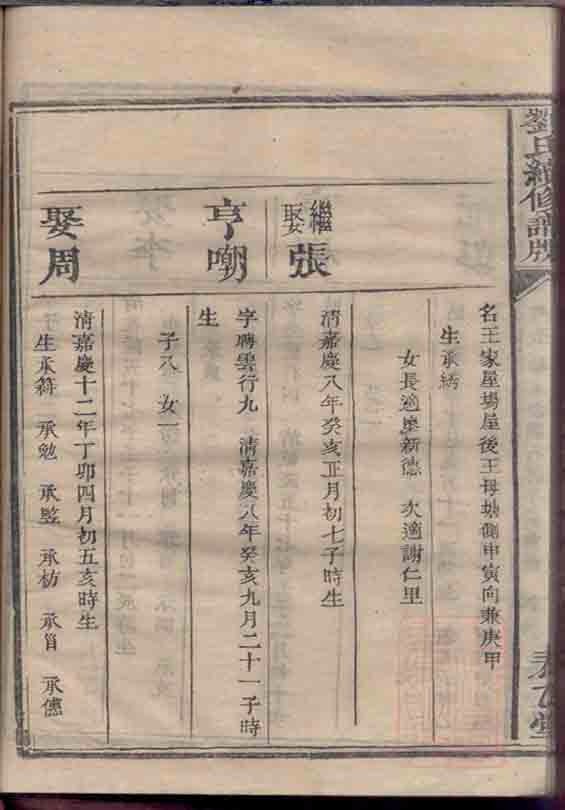 劉氏續修譜牒
名王家屋場屋後王母坳側申寅向兼庚甲
生承紡
女長適廖新德 次適謝仁里
繼娶張
清嘉慶八年癸亥正月初七子時生
亨嘲
字聘雲行九 清嘉慶八年癸亥九月二十一子時
生
子八 女一
娶周
清嘉慶十二年丁卯四月初五亥時生
生承符 承勉 承 承枋 承 承德